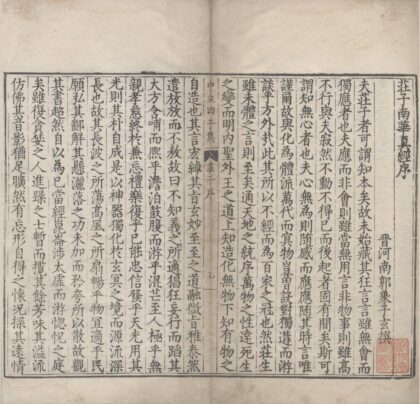 莊子南華真經序
晉河南郭象子玄撰
夫莊子者可謂知本矣故未始藏其狂言言雖無會而
獨應者也夫應而非會則雖當無用言非物事則雖高
不行與夫寂然不動不得已而後起者固有間矣斯可
謂知無心者也夫心無為則隨感而應應隨其時言唯
謹爾故與化為體流萬代而冥物豈曾設對獨遘而游
談乎方外哉此其所以不經而為百家之冠也然莊生
雖未體之言則至矣通天地之統序萬物之性達死生
之變而明內聖外王之道上知造化無物下知有物之
中立四子集 序
自造也其言宏綽其旨玄妙至至之道融微旨雅泰然
遣放放而不敖故曰不知義之所適猖狂妄行而蹈其
大方含哺而熙乎澹泊鼓腹而游乎混芒至人極乎無
親孝慈終於兼忘禮樂復乎已能忠信發乎天光用其
光則其朴自成是以神器獨化於玄冥之境而源流深
長也故其長波之所蕩高風之所扇暢乎物宜適乎民
願弘其鄙解其懸灑落之功未加而矜夸所以散故觀
其書超然自以為已當經崑崙涉太虛而游惚怳之庭
矣雖復貪婪之人進躁之士暫而攬其餘芳味其溢流
仿佛其音影猶足曠然有忘形自得之懷況探其遠情